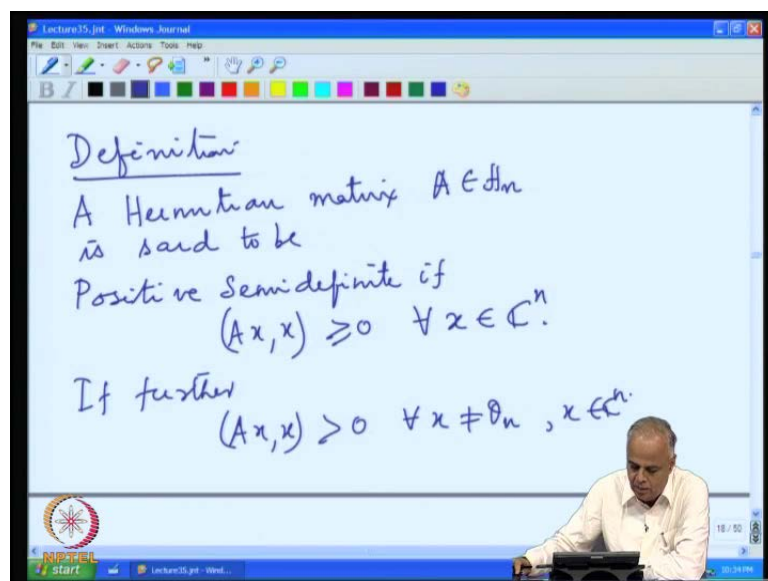 Lecture35.jnt - Windows Journal
File Edit View Insert Actions Tools Help
B I
Definition
A Hermitian matrix A ∈ ℍn
is said to be
Positive Semidefinite if
(Ax, x) ≥ 0 ∀ x ∈ ℂ^n.
If further
(Ax, x) > 0 ∀ x ≠ θn, x ∈ ℂ^n.
18 / 50
NPTEL
start
Lecture35.jnt - Wind...
10:34 PM